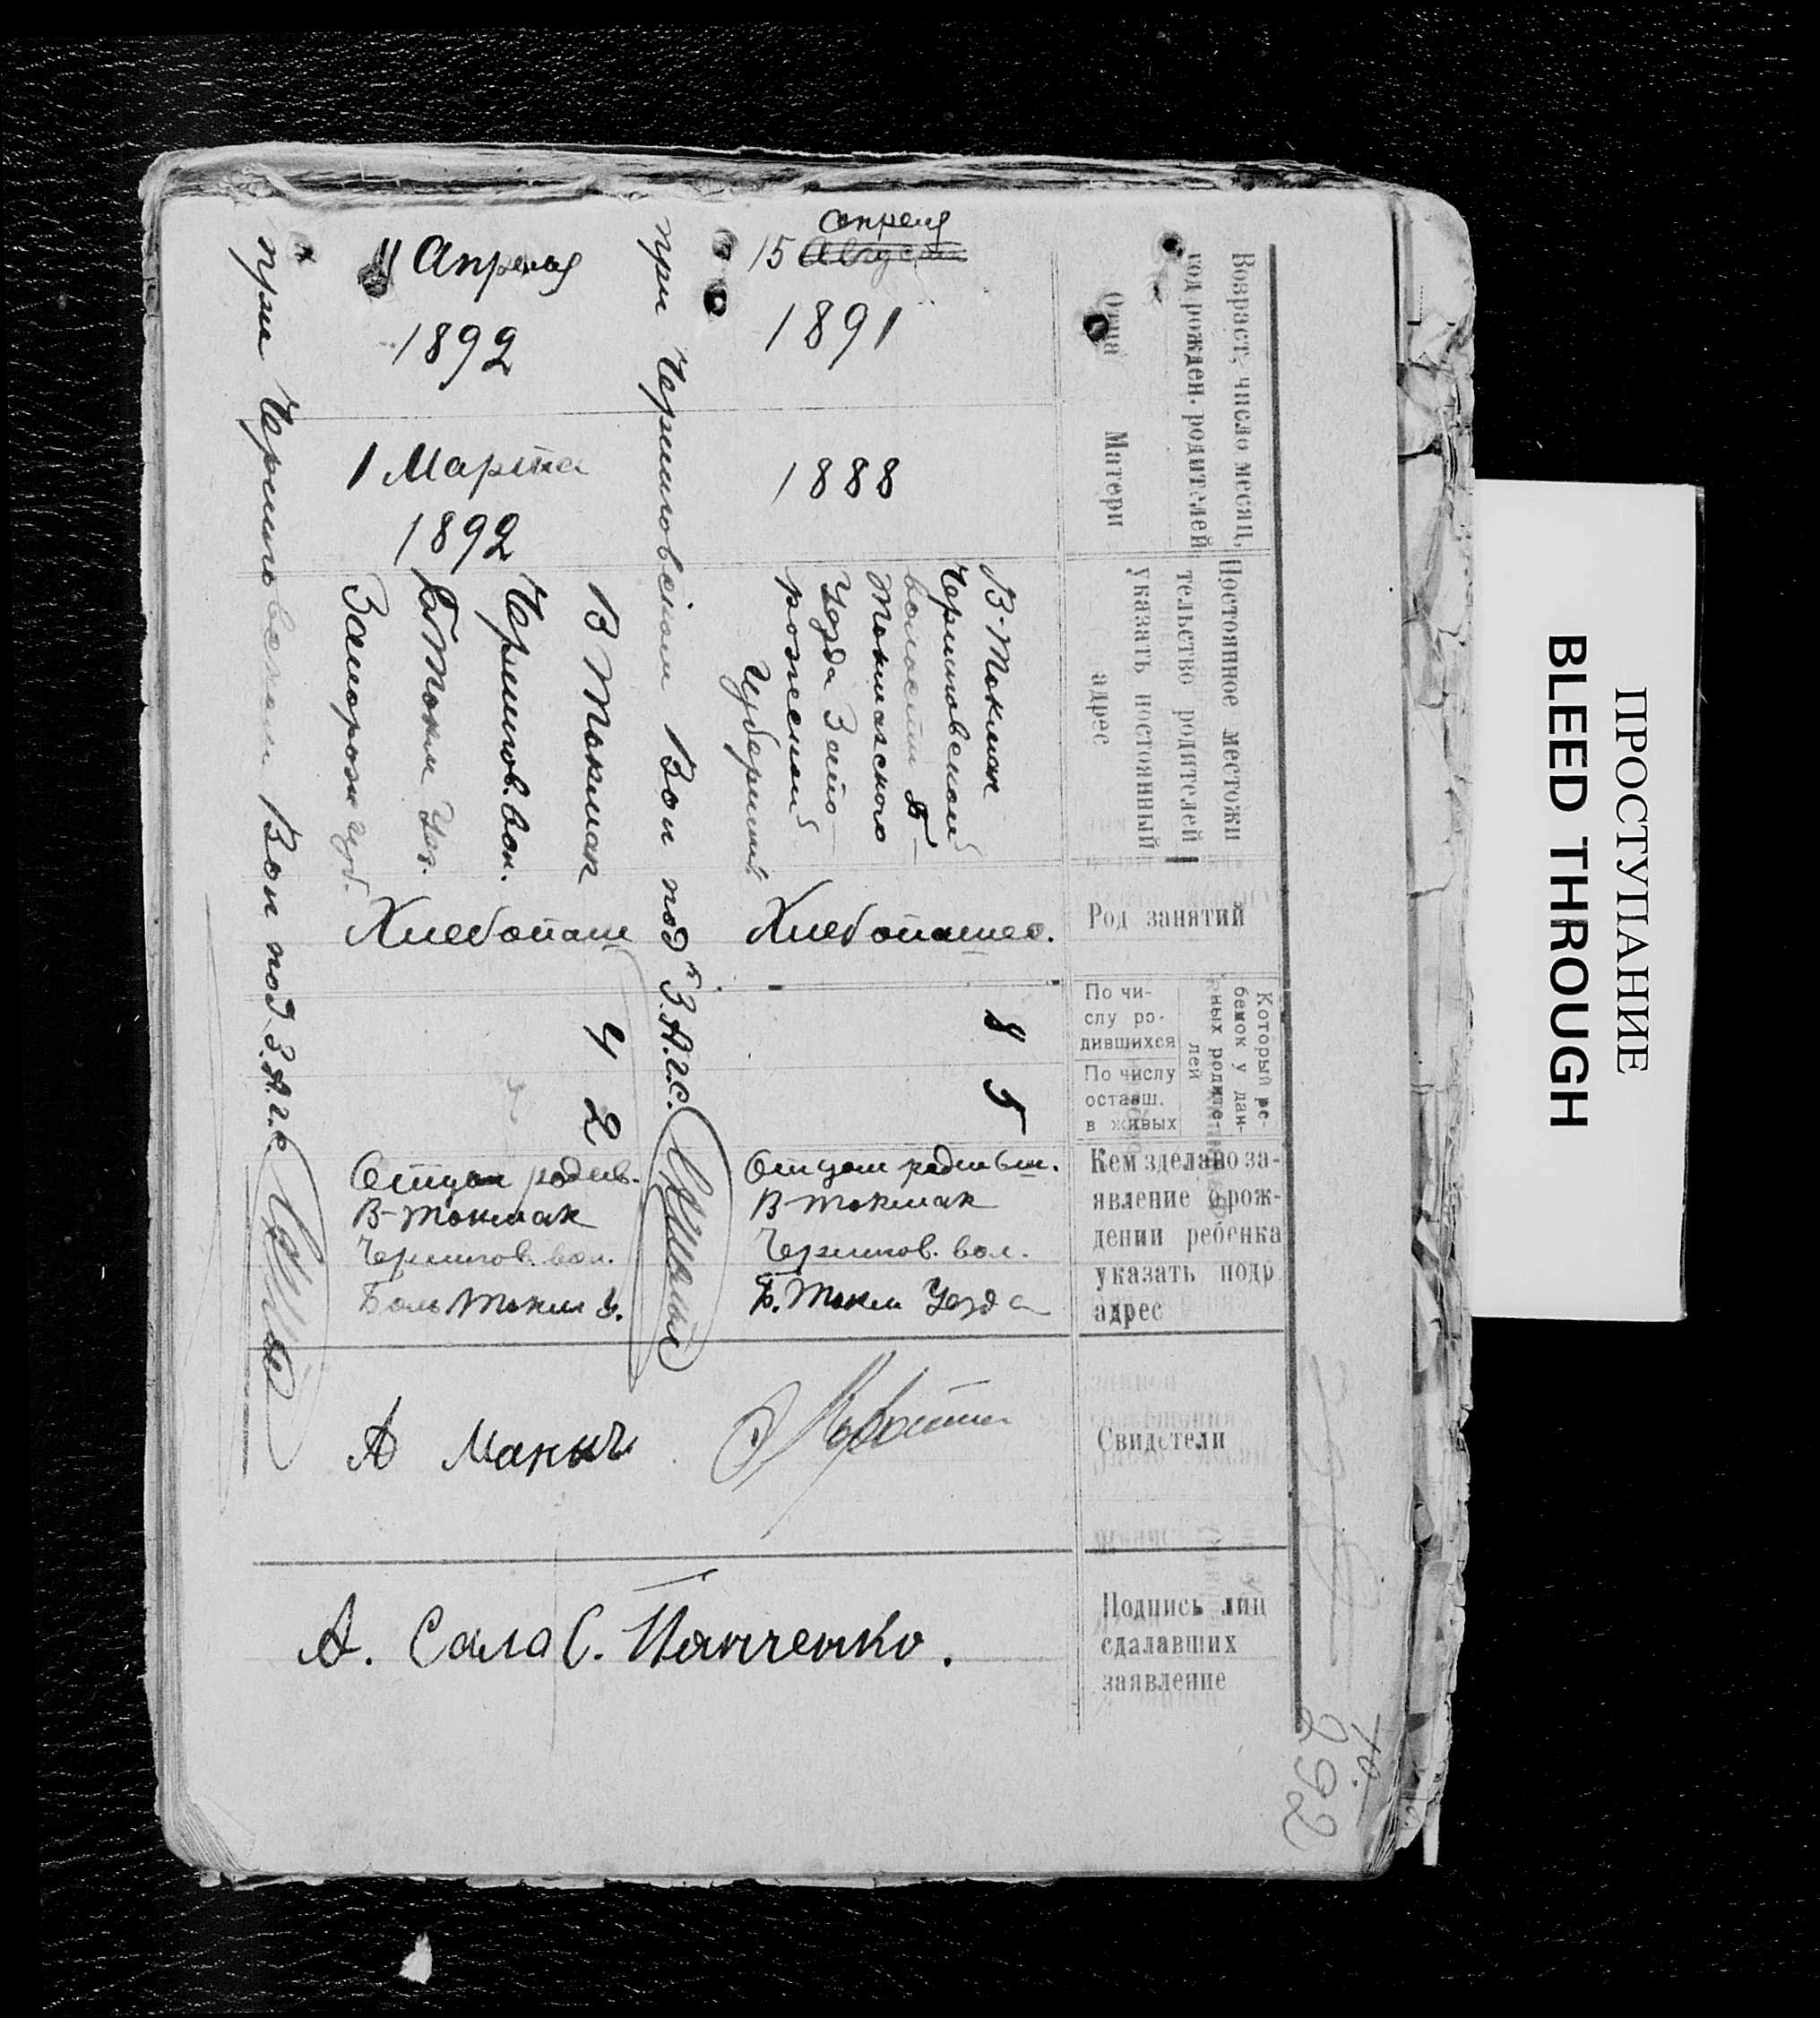 Возраст, число месяц,
год рожден. родителей
Отца
Матери
Постоянное местожи
тельство родителей
указать постоянный
адрес
Род занятий
Который ре-
бенок у дан-
ных родите-
лей
По чи-
слу ро-
дившихся
По числу
оставш.
в живых
Кем зделано за-
явление о рож-
дении ребенка
указать подр.
адрес
Свидетели
Подпись лиц
сдалавших
заявление
апреля
15 Августа
1891
1888
В-Токмак
Черниговской
волости Б-
Токмакского
Уезда Запо-
рожской
Губернии
Хлебопашес.
8
5
Отцом родивш.
В-Токмак
Чернигов. вол.
Б. Токм Уезда
С. Панченко.
при Черниговском Вол под З.А.Г.С.
11 Апреля
1892
1 Марта
1892
В Токмак
Чернигов. вол.
Б Токм Уез.
Запорож губ.
Хлебопаш
4
2
Отцом родив.
В-Токмак
Чернигов. вол.
Боль Токм У.
А
А. Сало
при Черниговском Вол под З.А.Г.С
292
ПРОСТУПАНИЕ
BLEED THROUGH